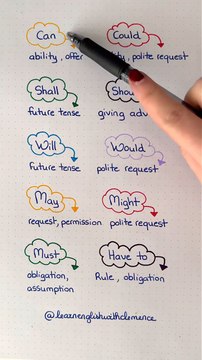 Can Could
ability, offer polite request
Shall Shou
future tense giving adv
Will Would
Future tense polite request
May Might
request, permission polite request
Must Have to
obligation, Rule, obligation
assumption
@learnenglishwithclemence